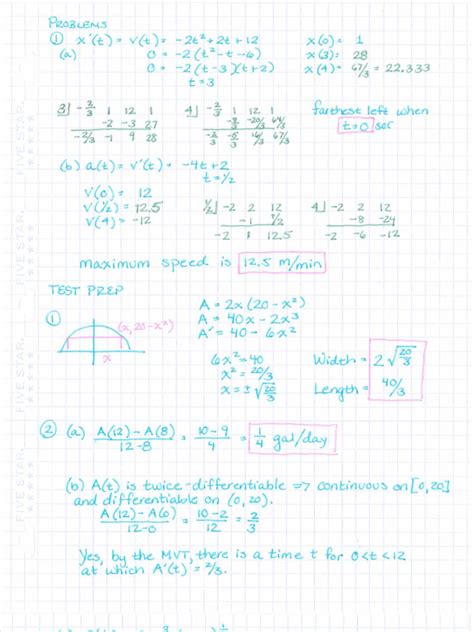 PROBLEMS
① x'(t) = v(t) = -2t² + 2t + 12
(a) 0 = -2(t² - t - 6)
0 = -2(t-3)(t+2)
t = 3
x(0) = 1
x(3) = 28
x(4) = 67/3 = 22.333
3⌋ -2/3 1 12 1
-2 -3 27
-2/3 -1 9 28
4⌋ -2/3 1 12 1
-8/3 -20/3 64/3
-2/3 -5/3 16/3 67/3
farthest left when
t=0 sec
(b) a(t) = v'(t) = -4t + 2
t = 1/2
v(0) = 12
v(1/2) = 12.5
v(4) = -12
1/2⌋ -2 2 12
-1 1/2
-2 1 12.5
4⌋ -2 2 12
-8 -24
-2 -6 -12
maximum speed is 12.5 m/min
TEST PREP
①
(x, 20-x²)
x
A = 2x(20 - x²)
A = 40x - 2x³
A' = 40 - 6x²
6x² = 40
x² = 20/3
x = ±√20/3
Width = 2√20/3
Length = 40/3
② (a) A(12) - A(8) / 12-8 = 10-9 / 4 = 1/4 gal/day
(b) A(t) is twice-differentiable ⇒ continuous on [0,20]
and differentiable on (0,20).
A(12) - A(0) / 12-0 = 10-2 / 12 = 2/3
Yes, by the MVT, there is a time t for 0<t<12
at which A'(t) = 2/3.
FIVE STAR.
FIVE STAR.
FIVE STAR.
FIVE STAR.